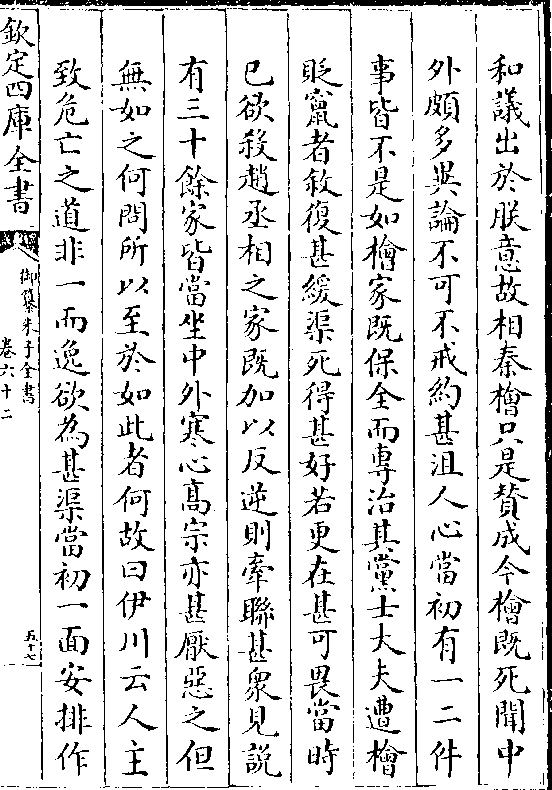 和議出於朕意故相秦檜只是賛成今檜既死聞中
外頗多異論不可不戒約甚沮人心當初有一二件
事皆不是如檜家既保全而專治其黨士大夫遭檜
貶竄者敘復甚緩渠死得甚好若更在甚可畏當時
已欲殺趙丞相之家既加以反逆則牽聯甚衆見說
有三十餘家皆當坐中外寒心髙宗亦甚厭惡之但
無如之何問所以至於如此者何故曰伊川云人主
致危亡之道非一而逸欲為甚渠當初一面安排作
欽定四庫全書
御纂朱子全書
卷六十二
五十七